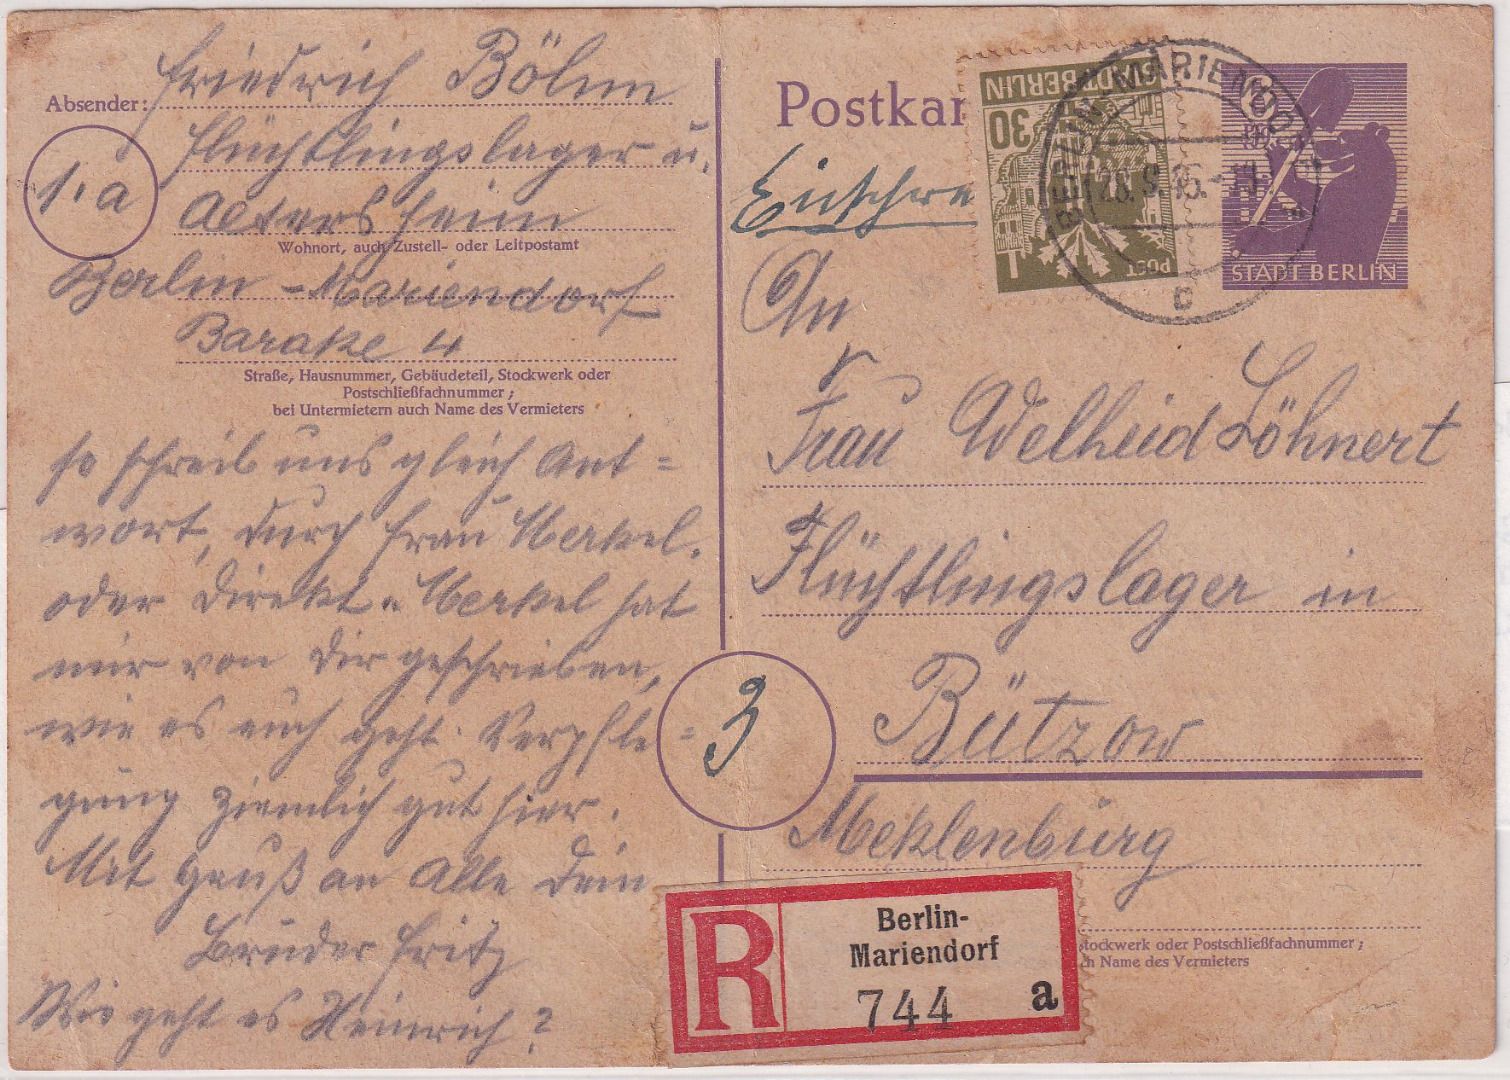 Absender: Friedrich Böhm
Flüchtlingslager u.
1.a
Altersheim
Wohnort, auch Zustell- oder Leitpostamt
Berlin-Mariendorf
Baracke 4
Straße, Hausnummer, Gebäudeteil, Stockwerk oder
Postschließfachnummer;
bei Untermietern auch Name des Vermieters
so schreib uns gleich Ant=
wort, durch Frau Merkel.
oder direkt. Merkel hat
mir von Dir geschrieben,
wie es euch geht. Verpfle=
gung ziemlich gut hier.
Mit Gruß an Alle Dein
Bruder Fritz
Wie geht es Heinrich?
Postkar
Einschre
STADT BERLIN
30
1
POST
BERLIN-MARIENDORF
C
6
STADT BERLIN
An
Frau Adelheid Löhnert
Flüchtlingslager in
3
Bützow
Meklenburg
stockwerk oder Postschließfachnummer;
ch Name des Vermieters
R
Berlin-
Mariendorf
744 a